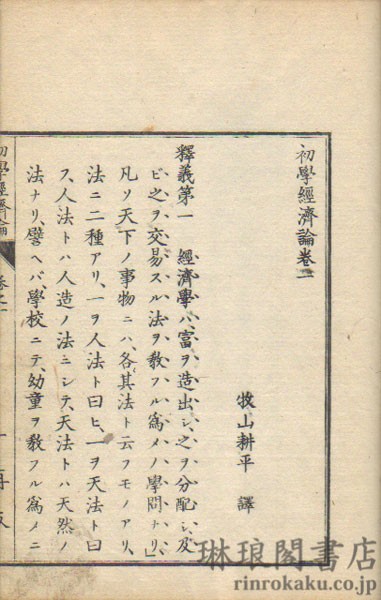 初學經濟論卷一
牧山耕平 譯
釋義第一 經濟學ハ、富ヲ造出シ、之ヲ分配シ、及
ビ之ヲ交易スル法ヲ敎フル爲メノ學問ナリ、」
凡ソ天下ノ事物ニハ、各其法ト云フモノアリ、
法ニ二種アリ、一ヲ人法ト曰ヒ、一ヲ天法ト曰
ス、人法トハ人造ノ法ニシテ、天法トハ天然ノ
法ナリ、譬ヘバ、學校ニテ、幼童ヲ敎フル爲メニ
初學經濟論
琳琅閣書店
rinrokaku.co.jp